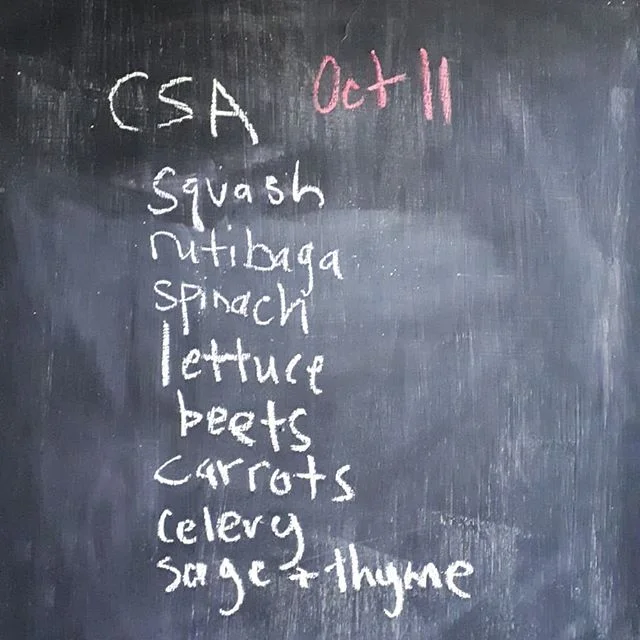 CSA Oct 11
squash
rutibaga
spinach
lettuce
beets
carrots
celery
sage + thyme